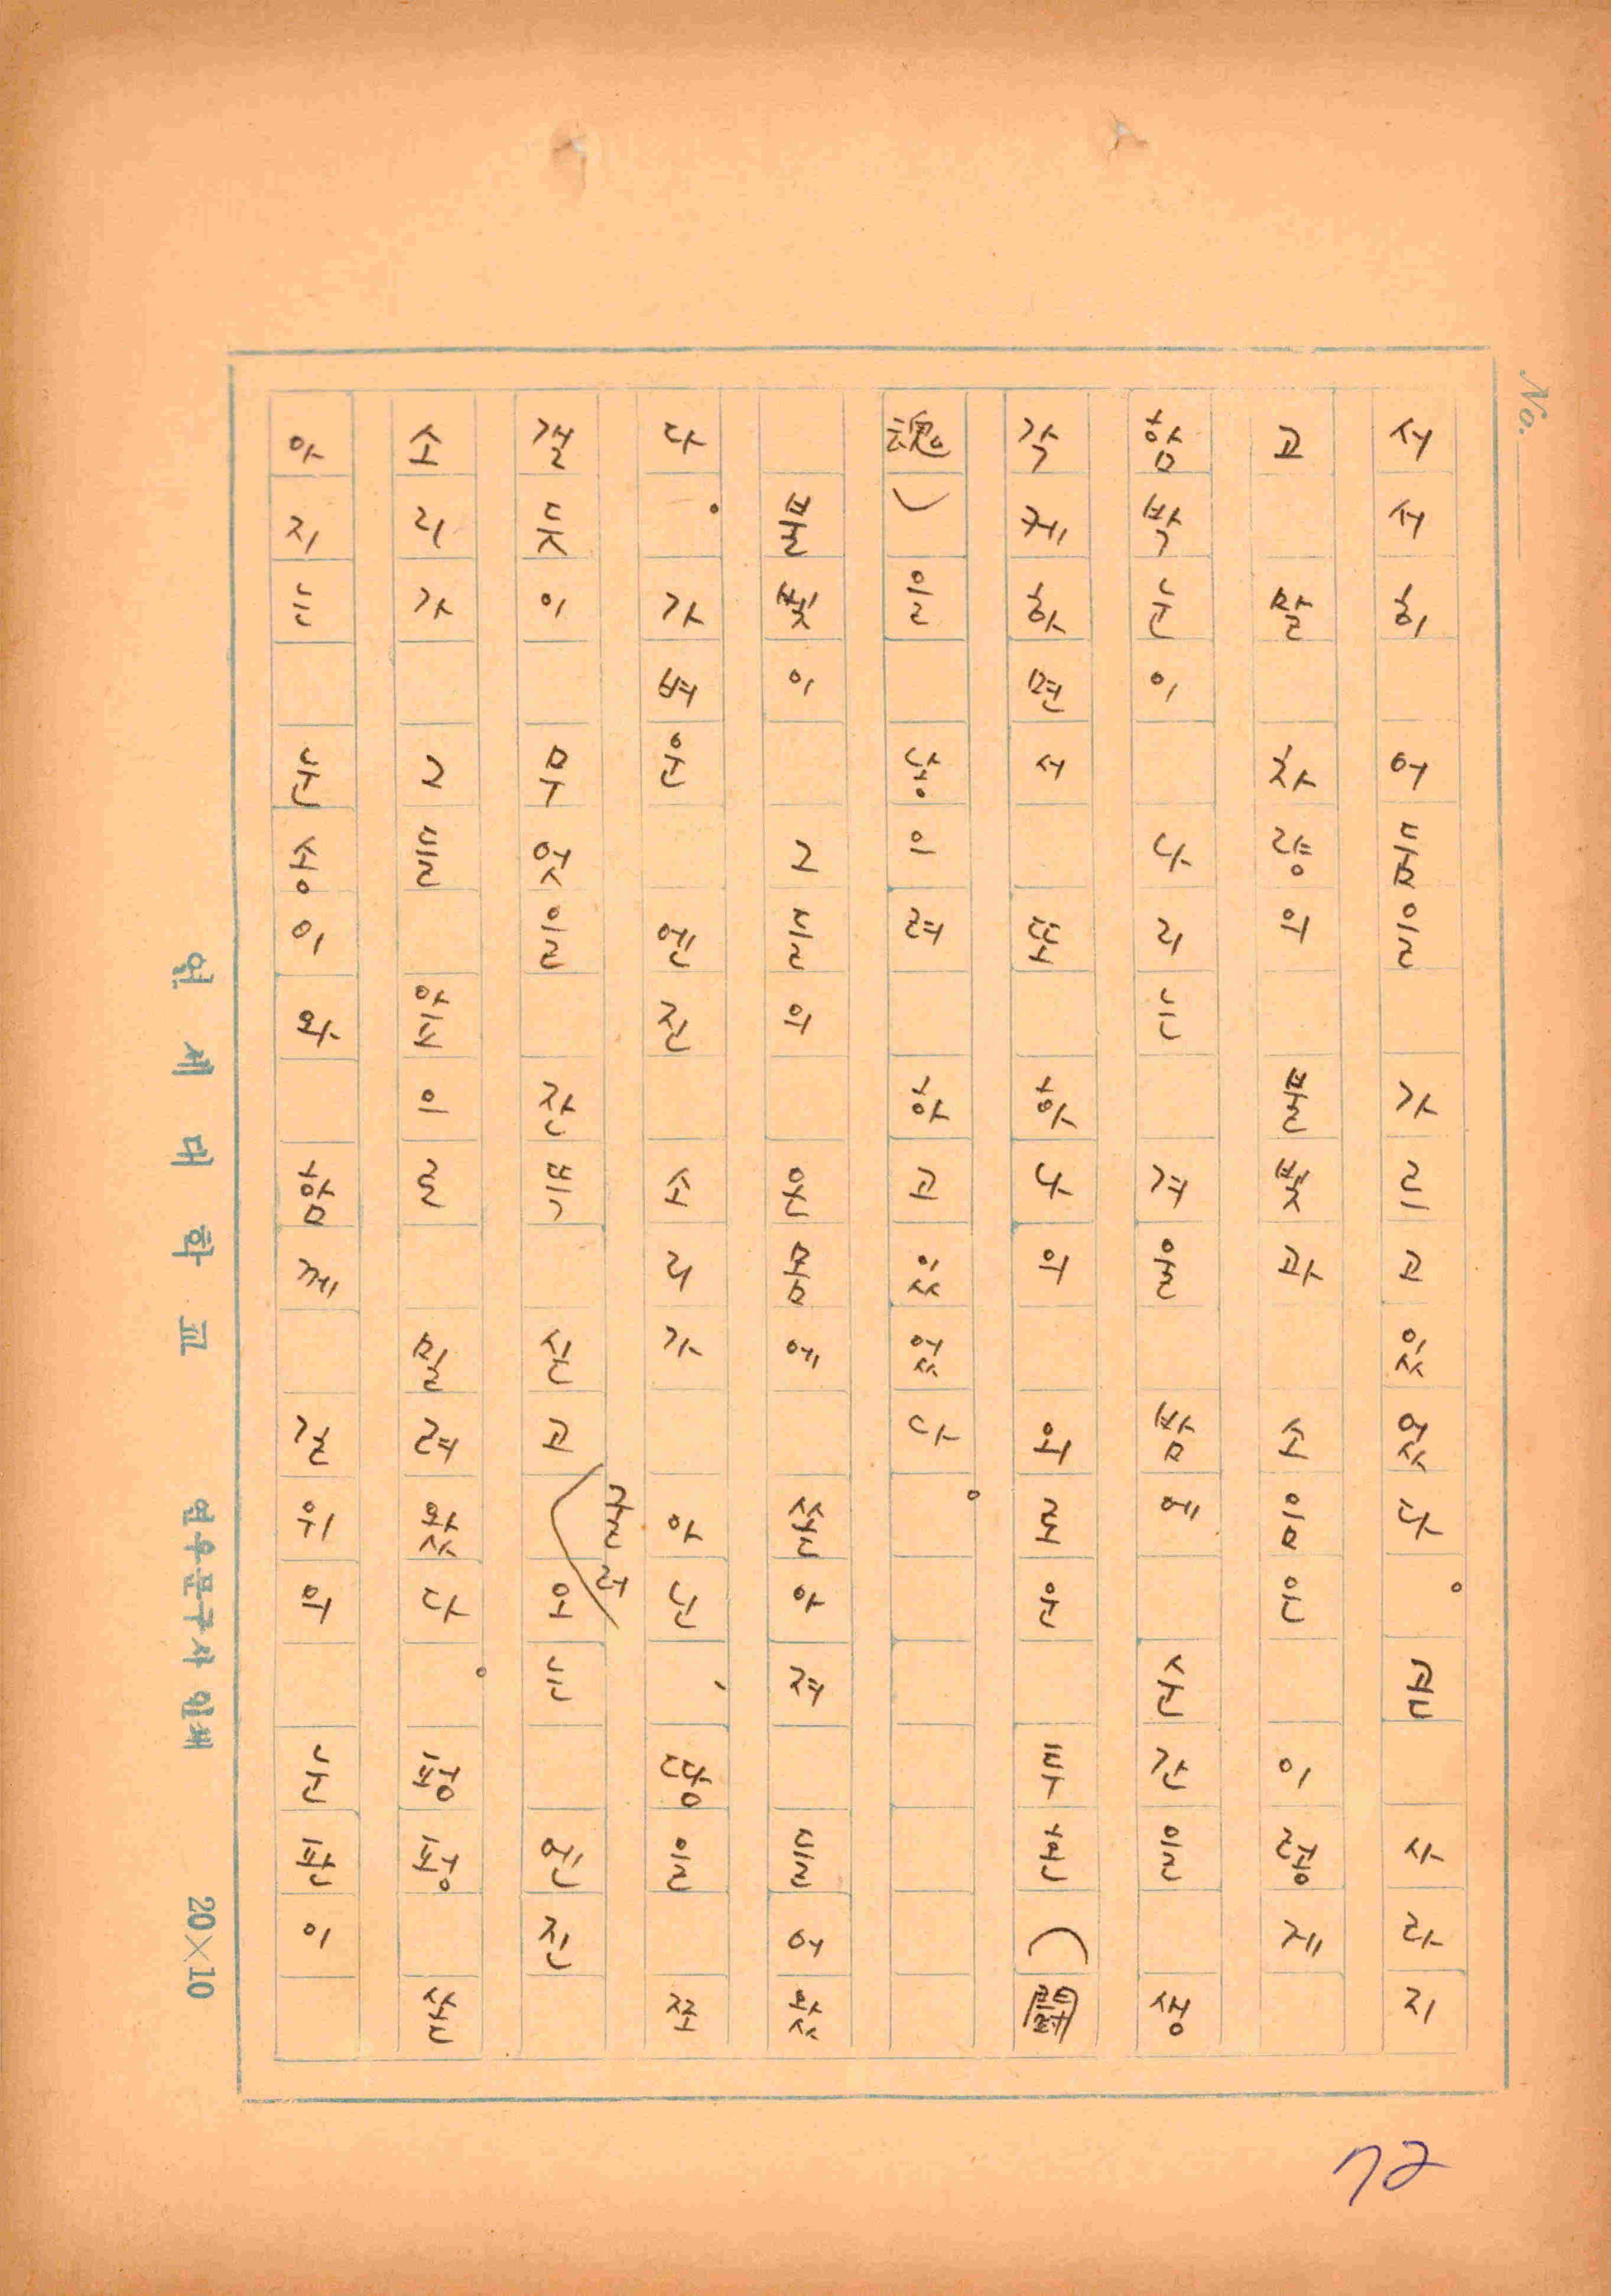 No.
서서히 어둠을 가리고 있었다。곧 사라지
고 말 차량의 불빛과 소음은 이렇게
함박눈이 나리는 겨울 밤에 순간을 생
각케하면서 또 하나의 외로운 투혼(鬪
魂)을 낳으려 하고 있었다。
불빛이 그들의 온몸에 쏟아져 들어왔
다。가벼운 엔진 소리가 아닌、땅을 쪼
갤듯이 무엇을 잔뜩 싣고 달려오는 엔진
소리가 그들 앞으로 밀려왔다。펑펑 쏟
아지는 눈송이와 함께 길위의 눈판이
연세대학교 연우문구사 인쇄 20×10
72